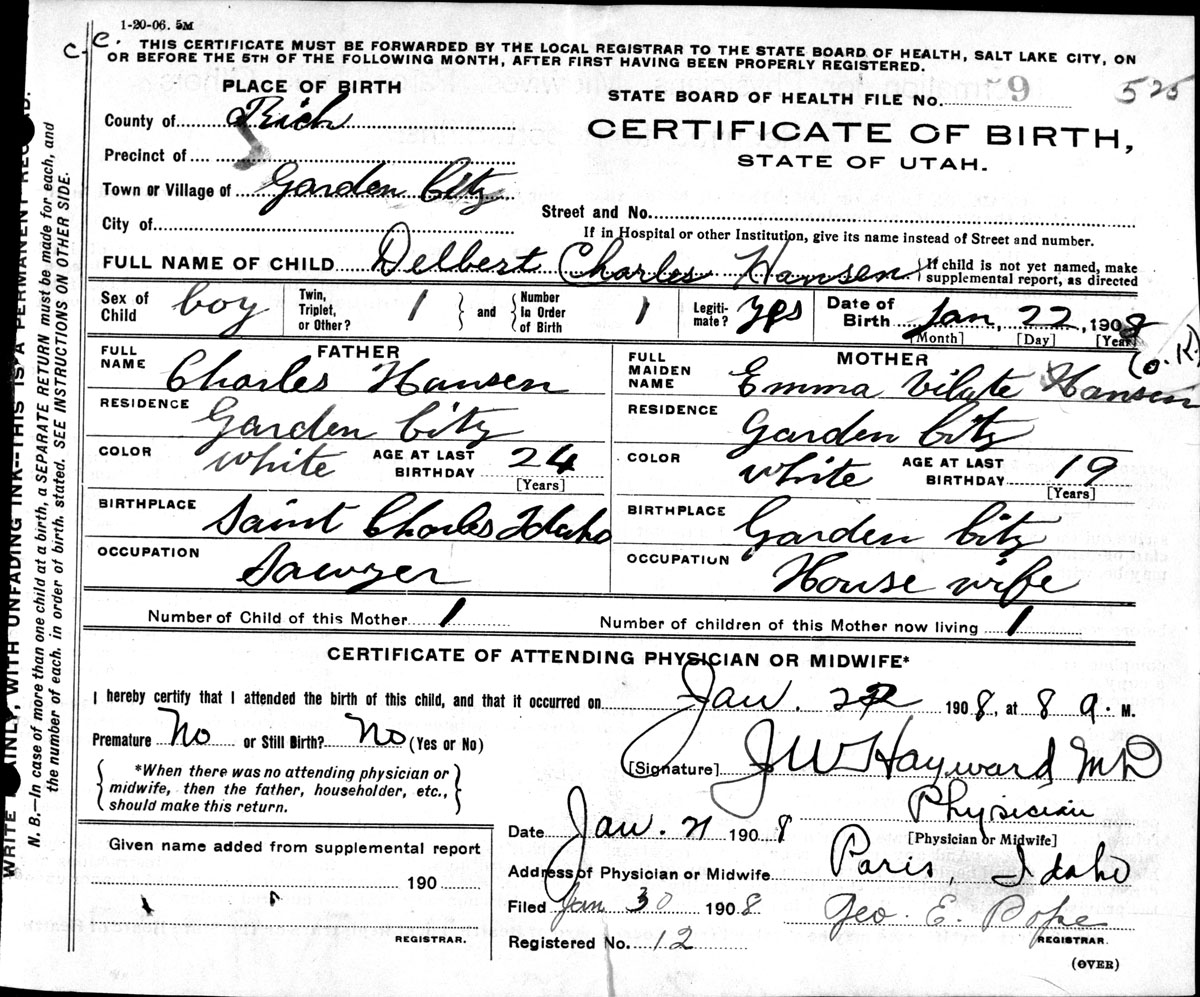 1-20-06. 5M
c.c. THIS CERTIFICATE MUST BE FORWARDED BY THE LOCAL REGISTRAR TO THE STATE BOARD OF HEALTH, SALT LAKE CITY, ON
OR BEFORE THE 5TH OF THE FOLLOWING MONTH, AFTER FIRST HAVING BEEN PROPERLY REGISTERED.
PLACE OF BIRTH
STATE BOARD OF HEALTH FILE No. 9 525
County of Rich
CERTIFICATE OF BIRTH,
STATE OF UTAH.
Precinct of
Town or Village of Garden City
City of
Street and No.
If in Hospital or other Institution, give its name instead of Street and number.
FULL NAME OF CHILD Delbert Charles Hansen } If child is not yet named, make
supplemental report, as directed
Sex of Child boy Twin, Triplet, or Other? 1 } and { Number In Order of Birth 1 Legitimate? Yes Date of Birth Jan, 22, 1908
[Month] [Day] [Year]
(O.K.)
FATHER
FULL NAME Charles Hansen
RESIDENCE Garden City
COLOR white AGE AT LAST BIRTHDAY 24
[Years]
BIRTHPLACE Saint Charles Idaho
OCCUPATION Sawyer
MOTHER
FULL MAIDEN NAME Emma Vilate Hansen
RESIDENCE Garden City
COLOR white AGE AT LAST BIRTHDAY 19
[Years]
BIRTHPLACE Garden City
OCCUPATION House wife
Number of Child of this Mother 1 Number of children of this Mother now living 1
CERTIFICATE OF ATTENDING PHYSICIAN OR MIDWIFE*
I hereby certify that I attended the birth of this child, and that it occurred on Jan. 22 1908, at 8 a. M.
Premature No or Still Birth? No (Yes or No)
{ *When there was no attending physician or
midwife, then the father, householder, etc.,
should make this return. }
[Signature] J W Hayward MD
Physician
[Physician or Midwife]
Date Jan. 21 1908
Address of Physician or Midwife Paris, Idaho
Filed Jan 30 1908 Geo. E. Pope
REGISTRAR.
Registered No. 12
(OVER)
Given name added from supplemental report
190
REGISTRAR.
WRITE INLY, WITH UNFADING INK--THIS IS A PERMANENT REC D.
N. B.—In case of more than one child at a birth, a SEPARATE RETURN must be made for each, and
the number of each, in order of birth, stated. SEE INSTRUCTIONS ON OTHER SIDE.